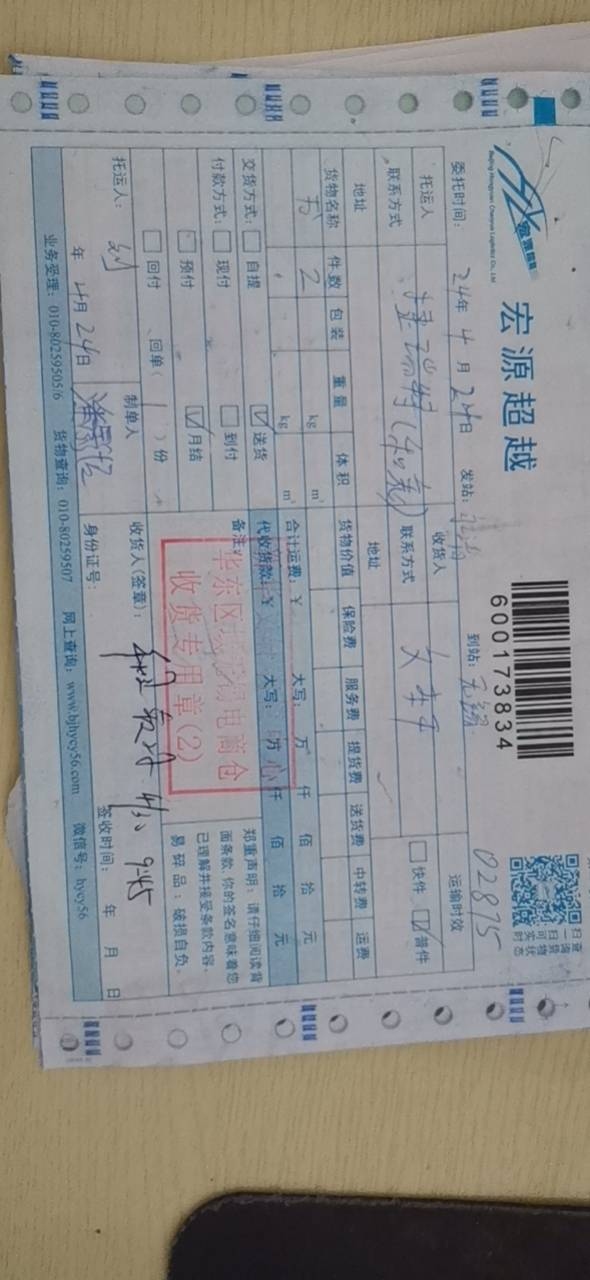 宏源超越
Beijing Hongyuan Chaoyue Logistics Co., Ltd
600173834
扫查
一询
扫货
可物
实状
时态
02875
委托时间: 24年 4月 24日 发站: 到站: 无锡
运输时效
托运人 收货人
快件 普件
联系方式 联系方式
地址 地址
货物名称 件数 包装 重量 体积 货物价值 保险费 服务费 提货费 送货费 中转费 运费
2 kg m³
kg m³
合计运费: ¥ 大写: 万 仟 佰 拾 元
交货方式: 自提 送货
代收货款: ¥ 大写: 万 仟 佰 拾 元
付款方式: 现付 到付
备注:
预付 月结
回付 回单( 1 )份
郑重声明: 请仔细阅读背
面条款, 你的签名意味着您
已理解并接受条款内容。
易碎品: 破损自负。
华东区 电商仓
收货专用章(2)
托运人: 刘
制单人
收货人(签章): 9:45
签收时间: 年 月 日
年 4月 24日
身份证号:
业务受理: 010-80259505/6 货物查询: 010-80259507 网上查询: www.bjhycy56.com 微信号: hycy56